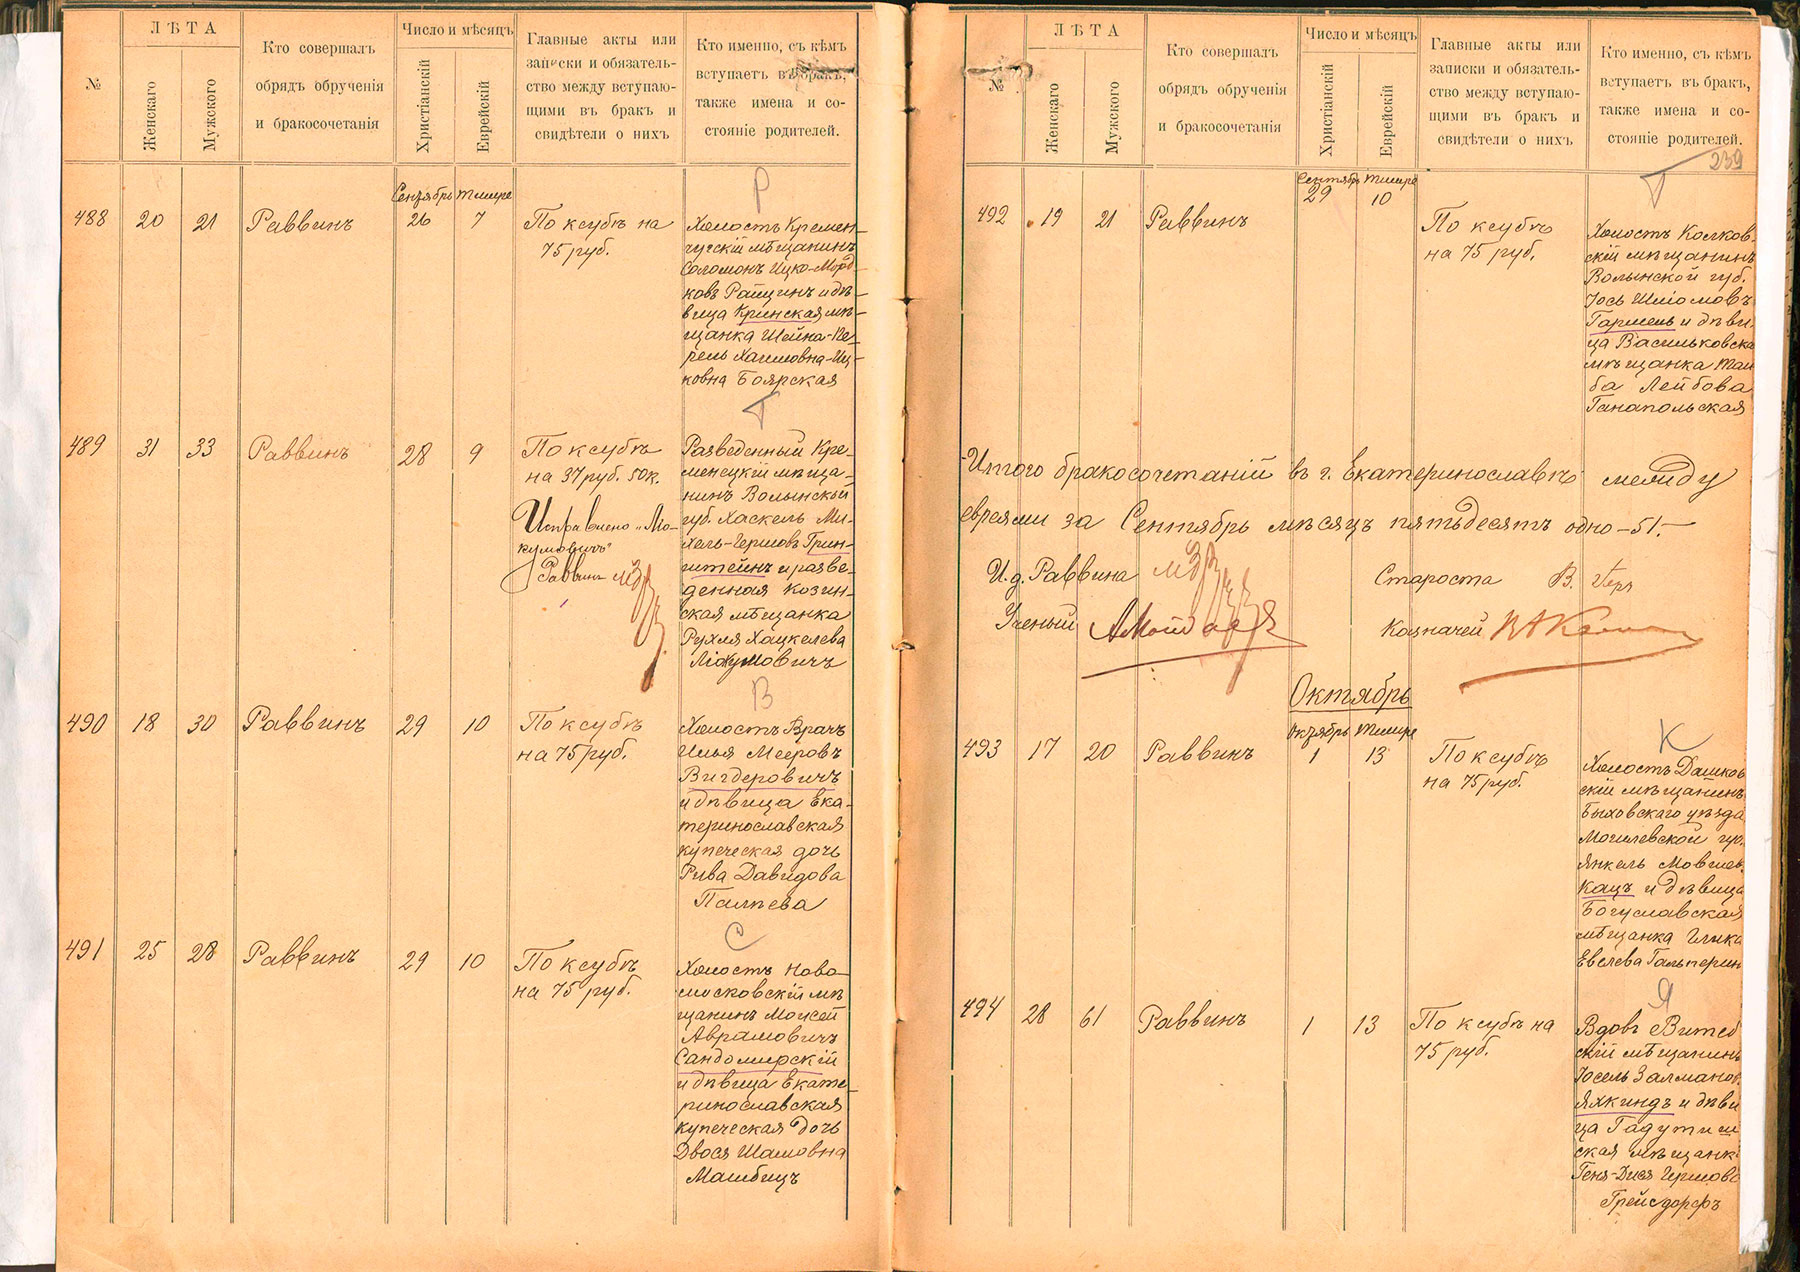 №
ЛѢТА
Женскаго
Мужского
Кто совершалъ
обрядъ обрученія
и бракосочетанія
Число и мѣсяцъ
Христіанскій
Еврейскій
Главные акты или
записки и обязатель-
ство между вступаю-
щими въ бракъ и
свидѣтели о нихъ
Кто именно, съ кѣмъ
вступаетъ въ бракъ,
также имена и со-
стояніе родителей.
Р
488 20 21 Раввинъ
Сентябрь Тишре
26 7
По ксубѣ на
75 руб.
Холостъ Кремен-
чугскій мѣщанинъ
Соломонъ Ицко-Морд-
ковъ Ращинъ и дѣ-
вица Крынская мѣ-
щанка Шейна-Пе-
рель Хаимовна-Иц-
ковна Боярская
Г
489 31 33 Раввинъ 28 9
По ксубѣ
на 37 руб. 50 к.
Исправлено „Мо-
кумовичъ"
Раввинъ
Разведенный Кре-
менецкій мѣща-
нинъ Волынской
губ. Хаскель Ми-
хель-Гершовъ Грин-
штейнъ и разве-
денная Козин-
ская мѣщанка
Рухля Хацкелева
Мокумовичъ
В
490 18 30 Раввинъ 29 10
По ксубѣ
на 75 руб.
Холостъ Врачъ
Илья Мееровъ
Вигдеровичъ
и дѣвица Ека-
теринославская
купеческая дочь
Рива Давидова
Палѣева
С
491 25 28 Раввинъ 29 10
По ксубѣ
на 75 руб.
Холостъ Ново-
московскій мѣ
щанинъ Моисей
Аврамовичъ
Сандомирскій
и дѣвица Екате-
ринославская
купеческая дочь
Двося Шамовна
Машбицъ
№
ЛѢТА
Женскаго
Мужского
Кто совершалъ
обрядъ обрученія
и бракосочетанія
Число и мѣсяцъ
Христіанскій
Еврейскій
Главные акты или
записки и обязатель-
ство между вступаю-
щими въ бракъ и
свидѣтели о нихъ
Кто именно, съ кѣмъ
вступаетъ въ бракъ,
также имена и со-
стояніе родителей.
239
Г
492 19 21 Раввинъ
Сентябрь Тишре
29 10
По ксубѣ
на 75 руб.
Холостъ Колков-
скій мѣщанинъ
Волынской губ.
Іось Шліомовъ
Гармель и дѣви-
ца Васильковска
мѣщанка Тай
ба Лейбова
Ганапольская
Итого бракосочетаній въ г. Екатеринославѣ между
евреями за Сентябрь мѣсяцъ пятьдесятъ одно - 51. -
И. д. Раввина
Староста В.
Ученый
Казначей
Октябрь
Октябрь Тишре
К
493 17 20 Раввинъ 1 13
По ксубѣ
на 75 руб.
Холостъ Дашков
скій мѣщанинъ
Быховскаго уѣзда
Могилевской гу.
Янкель Мовшев
Кацъ и дѣвица
Богуславская
мѣщанка Глика
Евелева Гальперин
Я
494 28 61 Раввинъ 1 13
По ксубѣ на
75 руб.
Вдовъ Витеб
скій мѣщанинъ
Іосель Залманов.
Яхкиндъ и дѣви
ца Гадутиш
ская мѣщанк
Геня-Дися Гершова
Грейсдорфъ